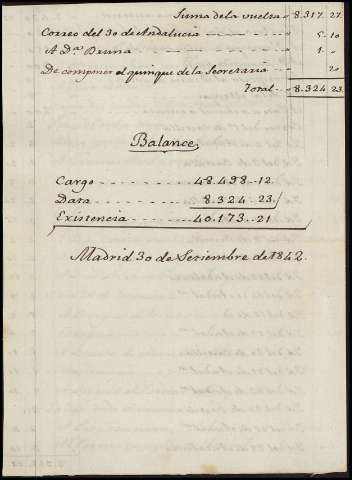 Suma de la vuelta " 8.317. 27.
Correo del 30 de Andalucia " 5.. 10
A D.ª Bruna " 1. "
De componer el quinque de la Secretaria " 20
Total " 8.324 23.
Balance
Cargo 48.498..12
Data 8.324..23.
Existencia 40.173..21
Madrid 30 de Setiembre de 1842.